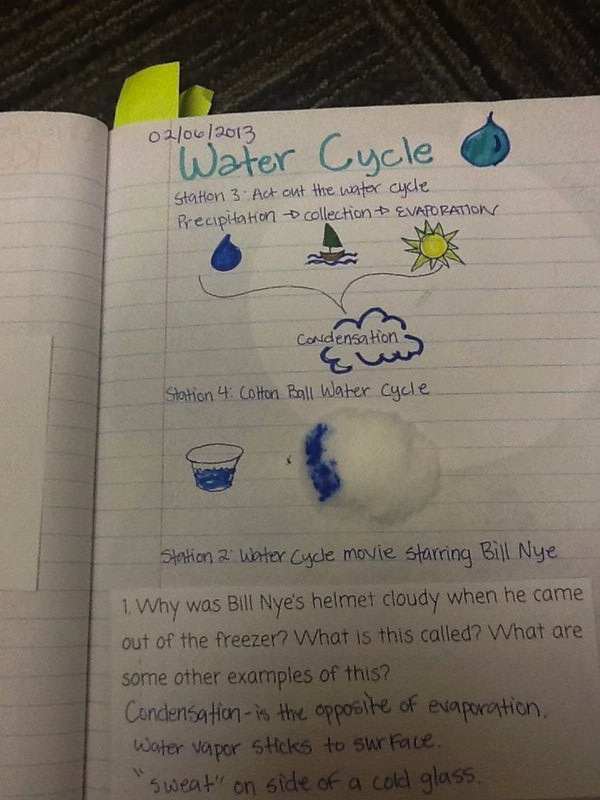 02/06/2013
Water Cycle
Station 3: Act out the water cycle
Precipitation → collection → EVAPORATION
Condensation
Station 4: Cotton Ball Water Cycle
Station 2: Water Cycle movie starring Bill Nye
1. Why was Bill Nye's helmet cloudy when he came
out of the freezer? What is this called? What are
some other examples of this?
Condensation - is the opposite of evaporation.
Water vapor sticks to surface.
"sweat" on side of a cold glass.